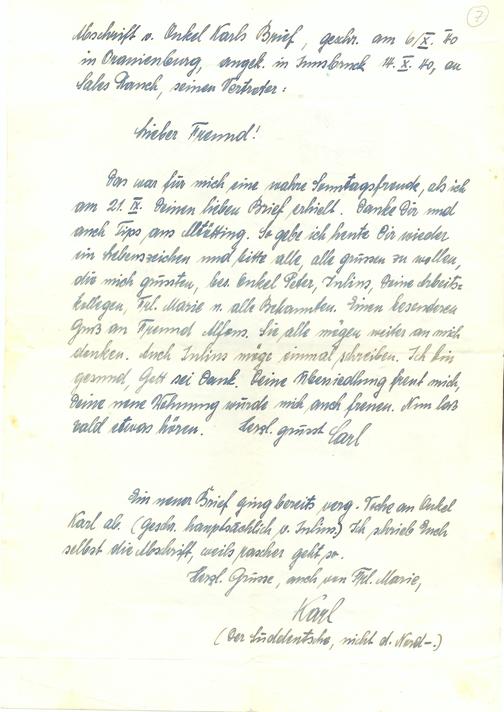 7
Abschrift v. Onkel Karls Brief, geschr. am 6/X. 40
in Oranienburg, angek. in Innsbruck 14. X. 40, an
seinen Vertreter:
Lieber Freund!
Das war für mich eine wahre Sonntagsfreude, als ich
am 21. IX. Deinen lieben Brief erhielt. Danke Dir und
auch Tips aus Altötting. So gebe ich heute Dir wieder
ein Lebenszeichen und bitte alle, alle grüssen zu wollen,
die mich grüssten, bes. Onkel Peter, Julius, Deine Arbeits=
kollegen, Frl. Marie u. alle Bekannten. Einen besonderen
Gruß an Freund Alfons. Sie alle mögen weiter an mich
denken. Auch Julius möge einmal schreiben. Ich bin
gesund, Gott sei Dank. Deine Übersiedlung freut mich,
Deine neue Wohnung würde mich auch freuen. Nun laß
bald etwas hören. Herzl. grüsst Carl
Ein neuer Brief ging bereits verg. Woche an Onkel
Karl ab. (Geschr. hauptsächlich v. Julius.) Ich schrieb Euch
selbst die Abschrift, weils rascher geht so.
Herzl. Grüsse, auch von Frl. Marie,
Karl
(Der Süddeutsche, nicht d. Nord-.)